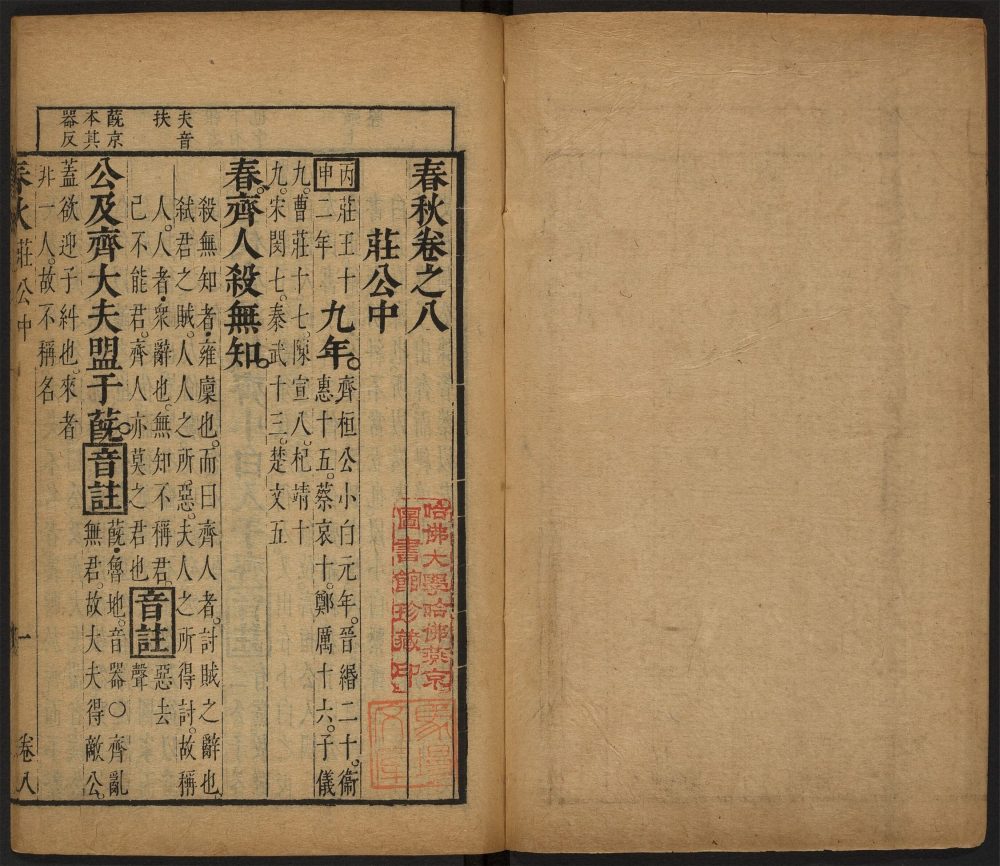 春秋卷之八
莊公中
丙申
莊王十二年
九年。
齊桓公小白元年。晉緡二十。衞惠十五。蔡哀十。鄭厲十六。子儀
九。曹莊十七。陳宣八。杞靖十
九。宋閔七。秦武十三。楚文五
春。齊人殺無知。
殺無知者。雍廩也。而曰齊人者。討賊之辭也。
弑君之賊。人人之所惡。夫人之所得討。故稱
人。人者。衆辭也。無知不稱君。
己不能君。齊人亦莫之君也
音註
惡去聲
公及齊大夫盟于蔇。
音註
蔇。魯地。音器○齊亂
無君。故大夫得敵公。
蓋欲迎子糾也。來者
非一人。故不稱名
夫音
扶
蔇京
本其
器反
春秋
莊公中
一
卷八
哈佛大學哈佛燕京
圖書館珍藏印